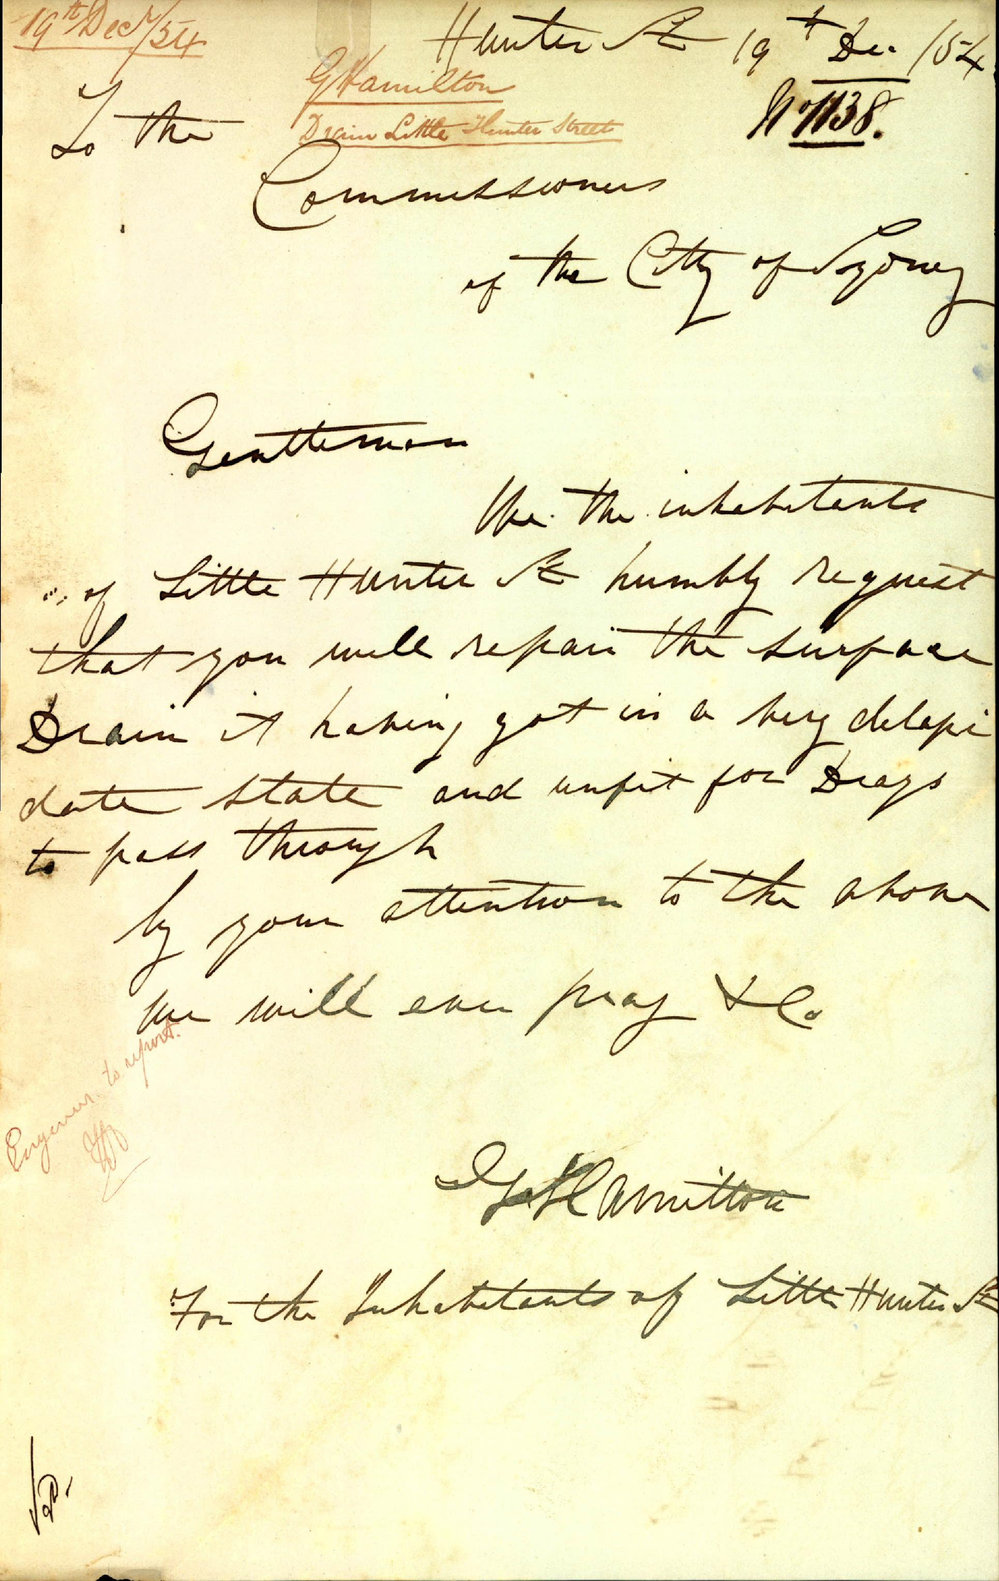 19th Decr/54
Hunter St 19th De. /54
G Hamilton
Drain Little Hunter Street
No 1138.
To the
Commissioners
of the City of Sydney
Gentlemen
We the inhabitants
of Little Hunter St humbly request
that you will repair the surface
Drain it having got in a very delapi
date state and unfit for Drays
to pass through
by your attention to the above
we will ever pray & Co
Engineer to report.
G Hamilton
For the Inhabitants of Little Hunter St